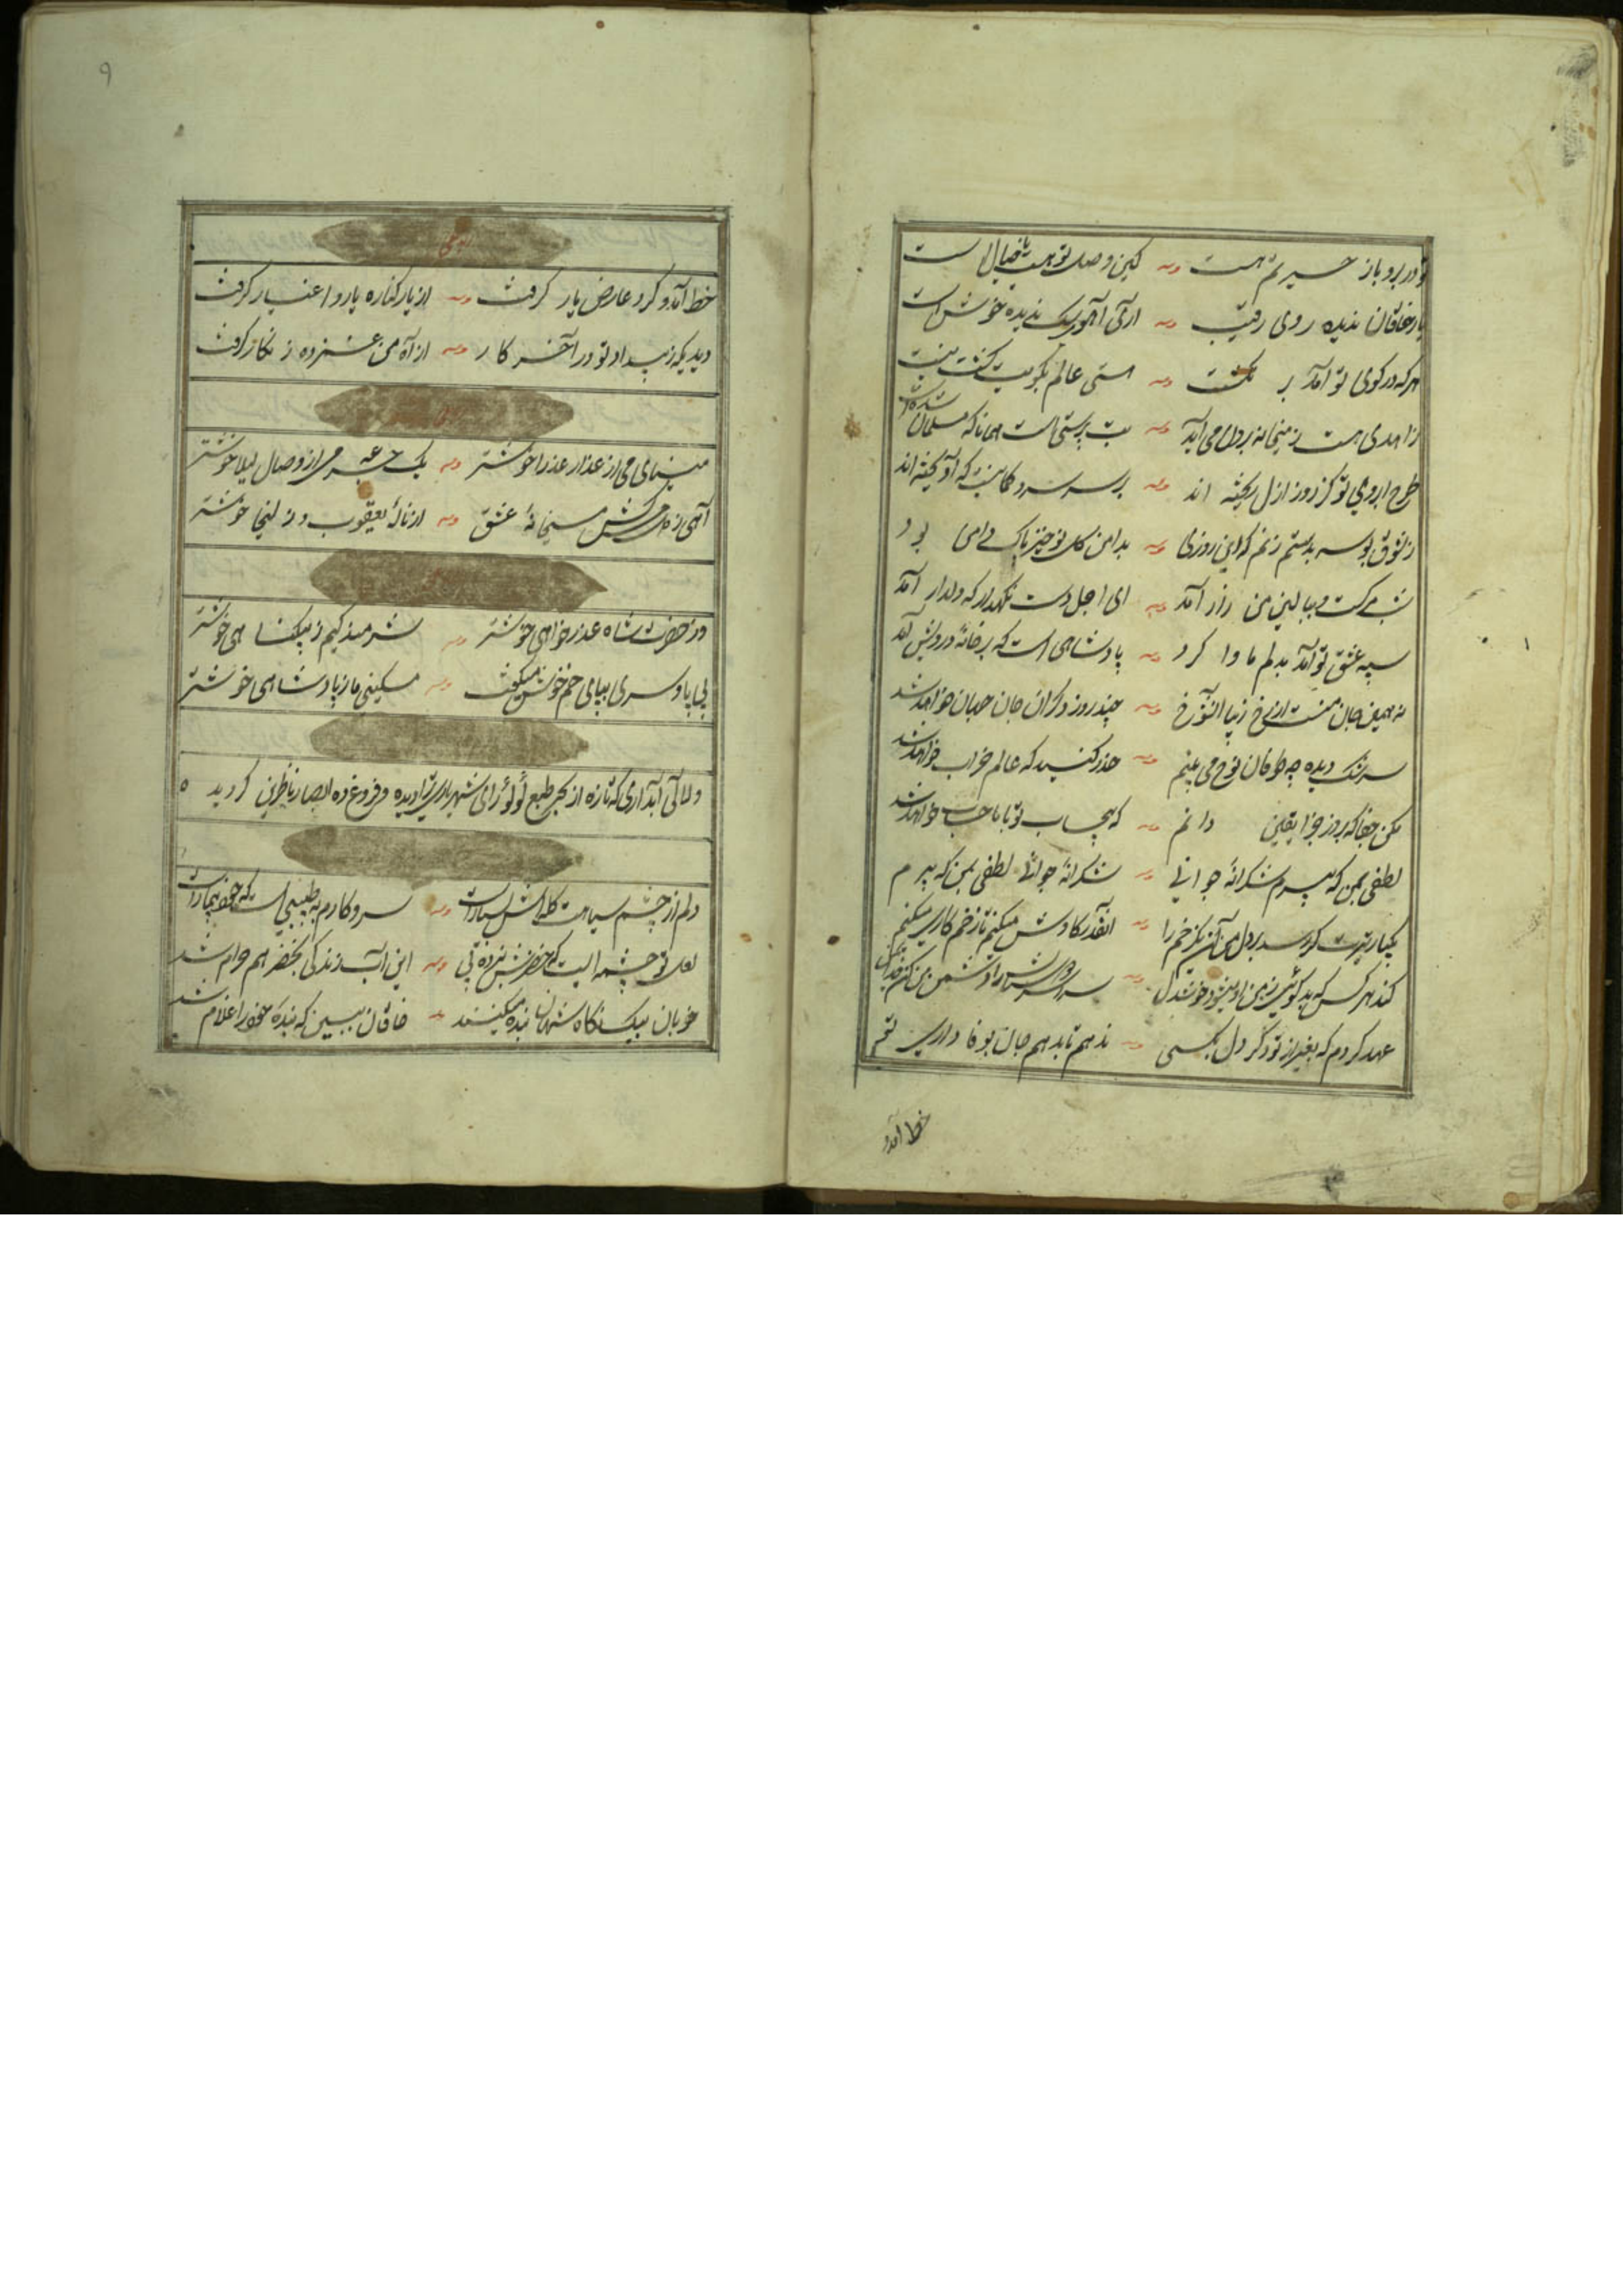 تو در برو باز حسیرتم هست وله کین وصل تو هست یا خیال است
یار خاقان ندیده روی رقیب وله آری آهوی سگ ندیده خوش است
هرکه در کوی تو آمد بر نگشت وله
زاهدی هست ز میخانه برون می آید وله بت پرستی است همانا که مسلمان شده است
طرح ابروی تو کز روز ازل ریخته اند وله بر سر سرو کمانیست که آویخته اند
ز شوق بوسه بدستم زنم که این روزی وله بدامن گل نو خیز پاک دامی بود
وبالین من زار آمد وله ای اجل دست نگهدار که دلدار آمد
سپه عشق تو آمد بدلم ماوا کرد وله پادشاهی است که بر خانه درویش آمد
نه همین جان منست از رخ زیبا وله چند روز دگر آن جان جهان خواهد شد
سرشک دیده چه طوفان نوح می بینم وله حذر کنید که عالم خراب خواهد شد
مکن جفا که بروز جزا یقین دانم وله که بیحساب تو با ما حساب خواهد شد
لطفی بمن که پیرم شکرانه جوانی وله شکرانه جوانی لطفی بمن که پیرم
یکبار تیرت گر رسد بر دل من آن یکزخم را وله آنقدر کاوش میکنم تا زخم کاری میکنم
کند هر کس که بد گوئی ز من او میشود خوشدل وله
عهد کردم که بغیر از تو دگر دل بکسی وله ندهم تا بدهم جان بوفا داری تو
خط آمد و
۹
رباعی
خط آمد و گرد عارض یار گرفت وله از یار کناره یار و اغیار گرفت
دیدیکه ز بیداد تو در آخر کار وله از آه من غمزده زنگار گرفت
مینای می از عذار عذرا خوشتر وله یک جرعه می از وصال لیلا خوشتر
آهی ز دل میکش میخانه عشق وله از ناله یعقوب و زلیخا خوشتر
در حضرت شاه عذر خواهی خوشتر وله شرمندگیم ز بیگناهی خوشتر
بی پا و سری بپای خم خوش میگفت وله مسکینی ما ز پادشاهی خوشتر
و لآلی آبداری که تازه از بحر طبع لؤلؤ زای شهریاری تراویده و فروغ ده ابصار ناظرین گردید ٥
دلم از چشم سیاهت گله اش بسیار است وله سر و کارم به طبیبی است که خود بیمار است
لعل تو چشمه ایست که خضرش نبرده پی وله این آب زندگی بخضر هم حرام شد
خوبان بیک نگاه شهان بنده میکنند وله خاقان ببین که بنده خود را غلام شد